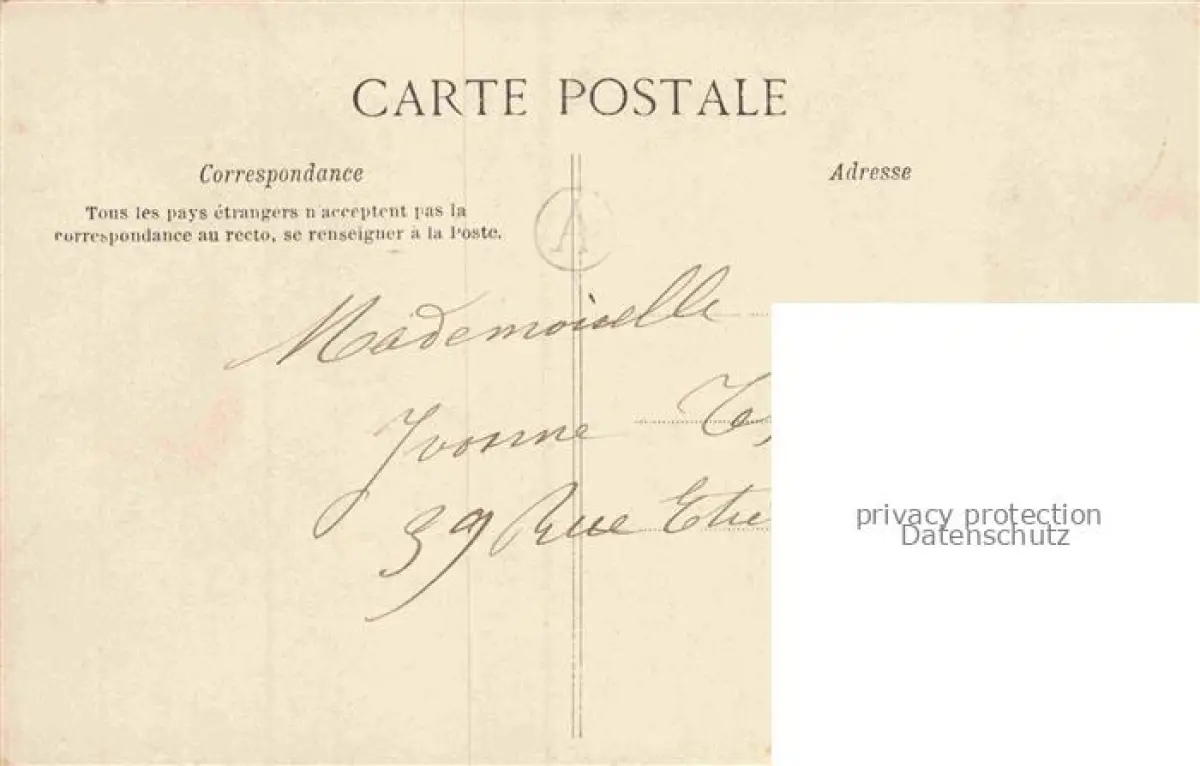 CARTE POSTALE
Correspondance
Adresse
Tous les pays étrangers n'acceptent pas la
correspondance au recto, se renseigner à la Poste.
A
Mademoiselle
Yvonne
39 Rue
privacy protection
Datenschutz